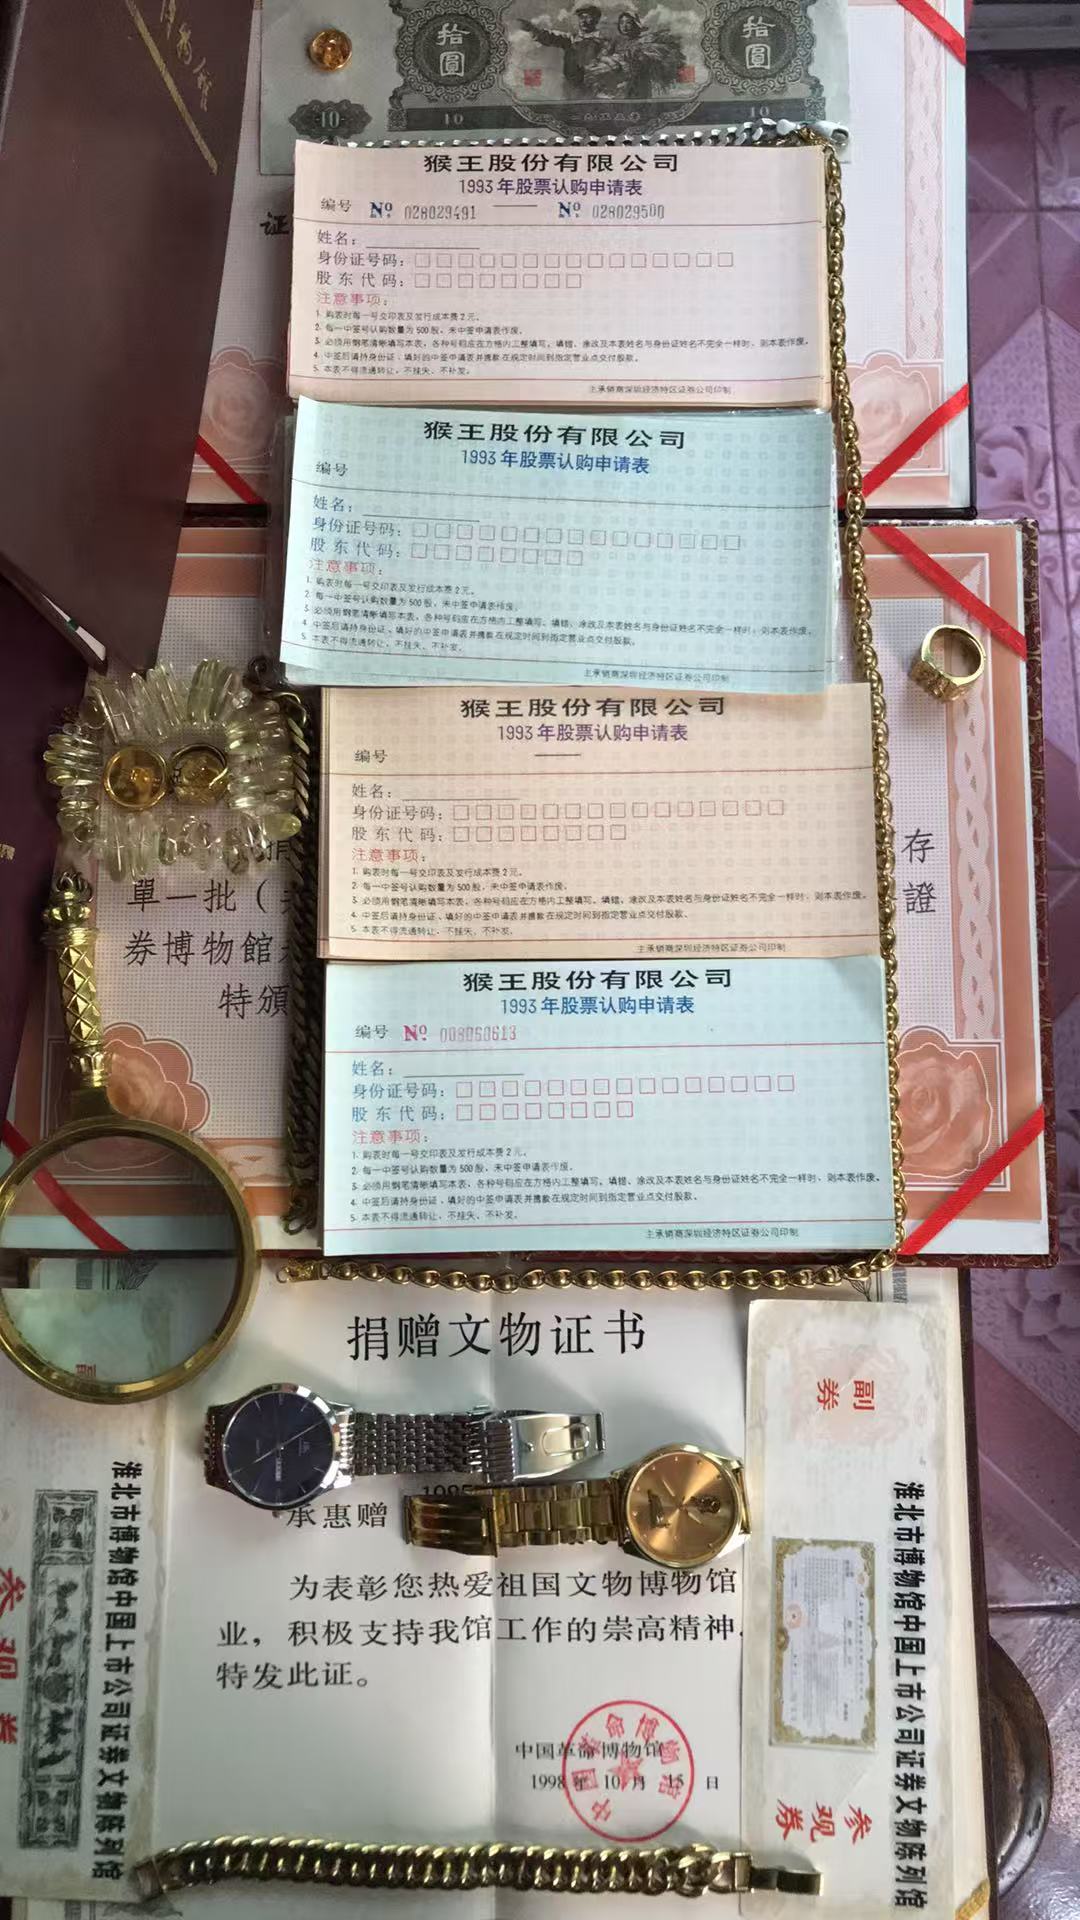 拾圓
拾圓
10
10
10
证
猴王股份有限公司
1993年股票认购申请表
编号 Nº 028029491 —— Nº 028029500
姓名：
身份证号码：
股东代码：
注意事项：
1. 购表时每一号交印表及发行成本费2元。
2. 每一中签号认购数量为500股，未中签申请表作废。
3. 必须用钢笔清晰填写本表，各种号码应在方格内工整填写，填错、涂改及本表姓名与身份证姓名不完全一样时，则本表作废。
4. 中签后请持身份证、填好的中签申请表并携款在规定时间到指定营业点交付股款。
5. 本表不得流通转让，不挂失、不补发。
主承销商深圳经济特区证券公司印制
猴王股份有限公司
1993年股票认购申请表
编号
姓名：
身份证号码：
股东代码：
注意事项：
1. 购表时每一号交印表及发行成本费2元。
2. 每一中签号认购数量为500股，未中签申请表作废。
3. 必须用钢笔清晰填写本表，各种号码应在方格内工整填写，填错、涂改及本表姓名与身份证姓名不完全一样时，则本表作废。
4. 中签后请持身份证、填好的中签申请表并携款在规定时间到指定营业点交付股款。
5. 本表不得流通转让，不挂失、不补发。
主承销商深圳经济特区证券公司印制
猴王股份有限公司
1993年股票认购申请表
编号 ——
姓名：
身份证号码：
股东代码：
注意事项：
1. 购表时每一号交印表及发行成本费2元。
2. 每一中签号认购数量为500股，未中签申请表作废。
3. 必须用钢笔清晰填写本表，各种号码应在方格内工整填写，填错、涂改及本表姓名与身份证姓名不完全一样时，则本表作废。
4. 中签后请持身份证、填好的中签申请表并携款在规定时间到指定营业点交付股款。
5. 本表不得流通转让，不挂失、不补发。
主承销商深圳经济特区证券公司印制
存
單一批（
證
券博物館
特頒
猴王股份有限公司
1993年股票认购申请表
编号 Nº 008050613
姓名：
身份证号码：
股东代码：
注意事项：
1. 购表时每一号交印表及发行成本费2元。
2. 每一中签号认购数量为500股，未中签申请表作废。
3. 必须用钢笔清晰填写本表，各种号码应在方格内工整填写，填错、涂改及本表姓名与身份证姓名不完全一样时，则本表作废。
4. 中签后请持身份证、填好的中签申请表并携款在规定时间到指定营业点交付股款。
5. 本表不得流通转让，不挂失、不补发。
主承销商深圳经济特区证券公司印制
捐赠文物证书
承惠赠
为表彰您热爱祖国文物博物馆
业，积极支持我馆工作的崇高精神，
特发此证。
中国革命博物馆
1998年10月15日
中国革命博物馆
淮北市博物馆中国上市公司证券文物陈列馆
参观券
副券
淮北市博物馆中国上市公司证券文物陈列馆
参观券